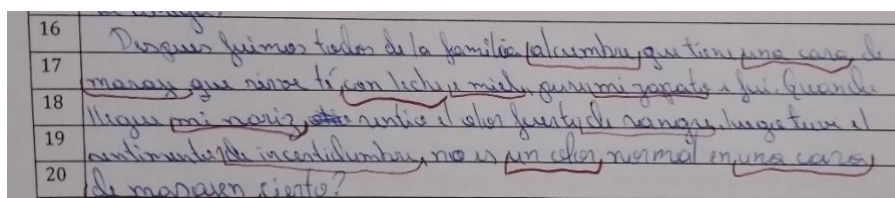 16 Despues fuimos todos de la familia al cumbre, que tiene una casa de
17 masaje que sirve té, con leche, e miel, puse mi zapato e fui. Quando
18 llegue mi nariz, sintio el olor fuerty de sangre, luego tuve el
19 sentimento de incertidumbre, no es un olor, normal en una casa
20 de masajen cierto?